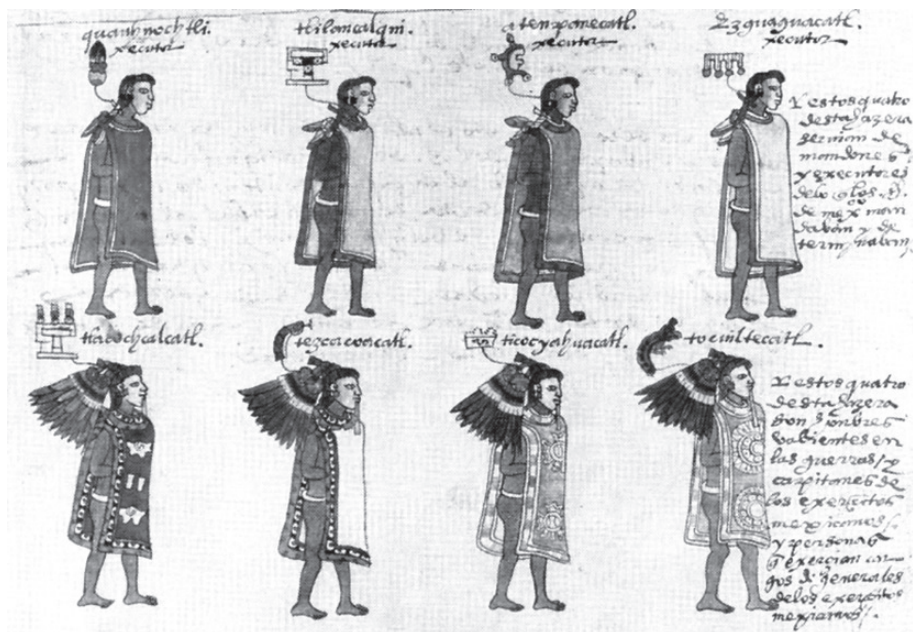 quauhnochtli.
xecutor
tlilancalqui.
xecutor
tenpanecatl.
xecutor
Ezguaguacatl.
xecutor
Y estos quatro
desta hazera
servian de
mandones
y executores
de lo q̃ los s.
de mexco man
davan y de
terminavan
tlacochcalcatl.
tezcacoacatl.
ticocyahuacatl.
tocuiltecatl.
Y estos quatro
desta hazera
son honbres
valientes en
las guerras / y
capitanes de
los exercitos
mexicanos
y personas
q̃ exercian car
gos de generales
de los exercitos
mexicanos /.